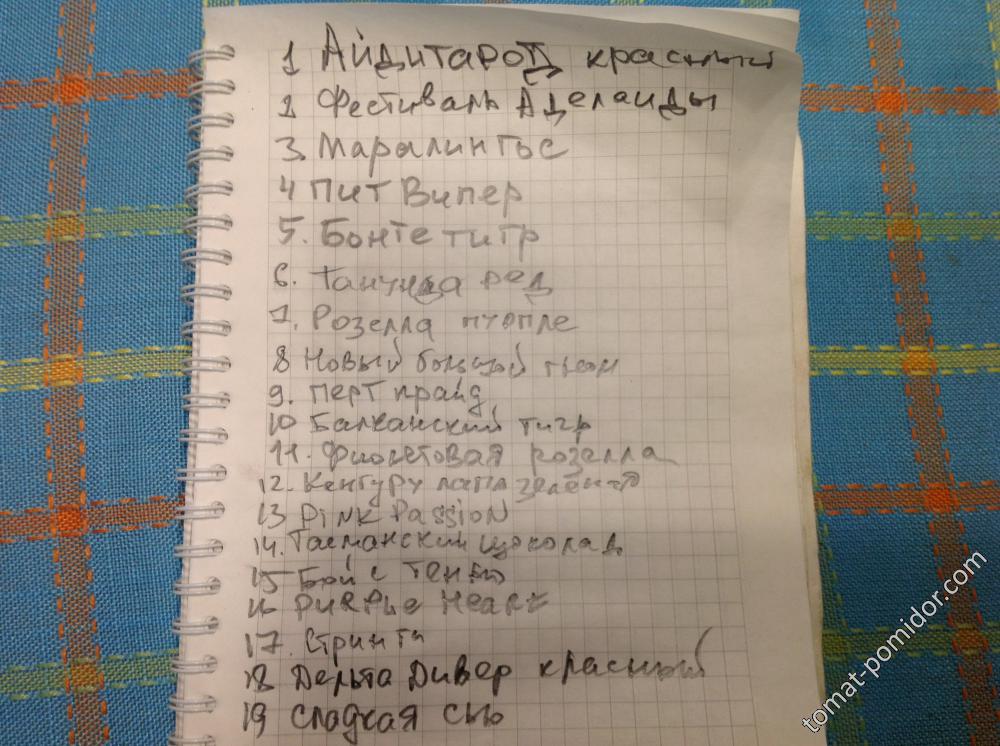 1 Айдитарод красный
2 Фестиваль Аделаиды
3. Маралингъс
4 Пит Випер
5. Бонте тигр
6. Танунда ред
7. Розелла пурпле
8 Новый большой гном
9. Перт прайд
10 Балканский тигр
11. Фиолетовая розелла
12. Кенгуру лапа зелёная
13 Pink Passion
14. Тасманский шоколад
15 Бой с тенью
16 Purple Heart
17. Стринги
18 Дельта Дивер красный
19 Сладкая Сью
tomat-pomidor.com